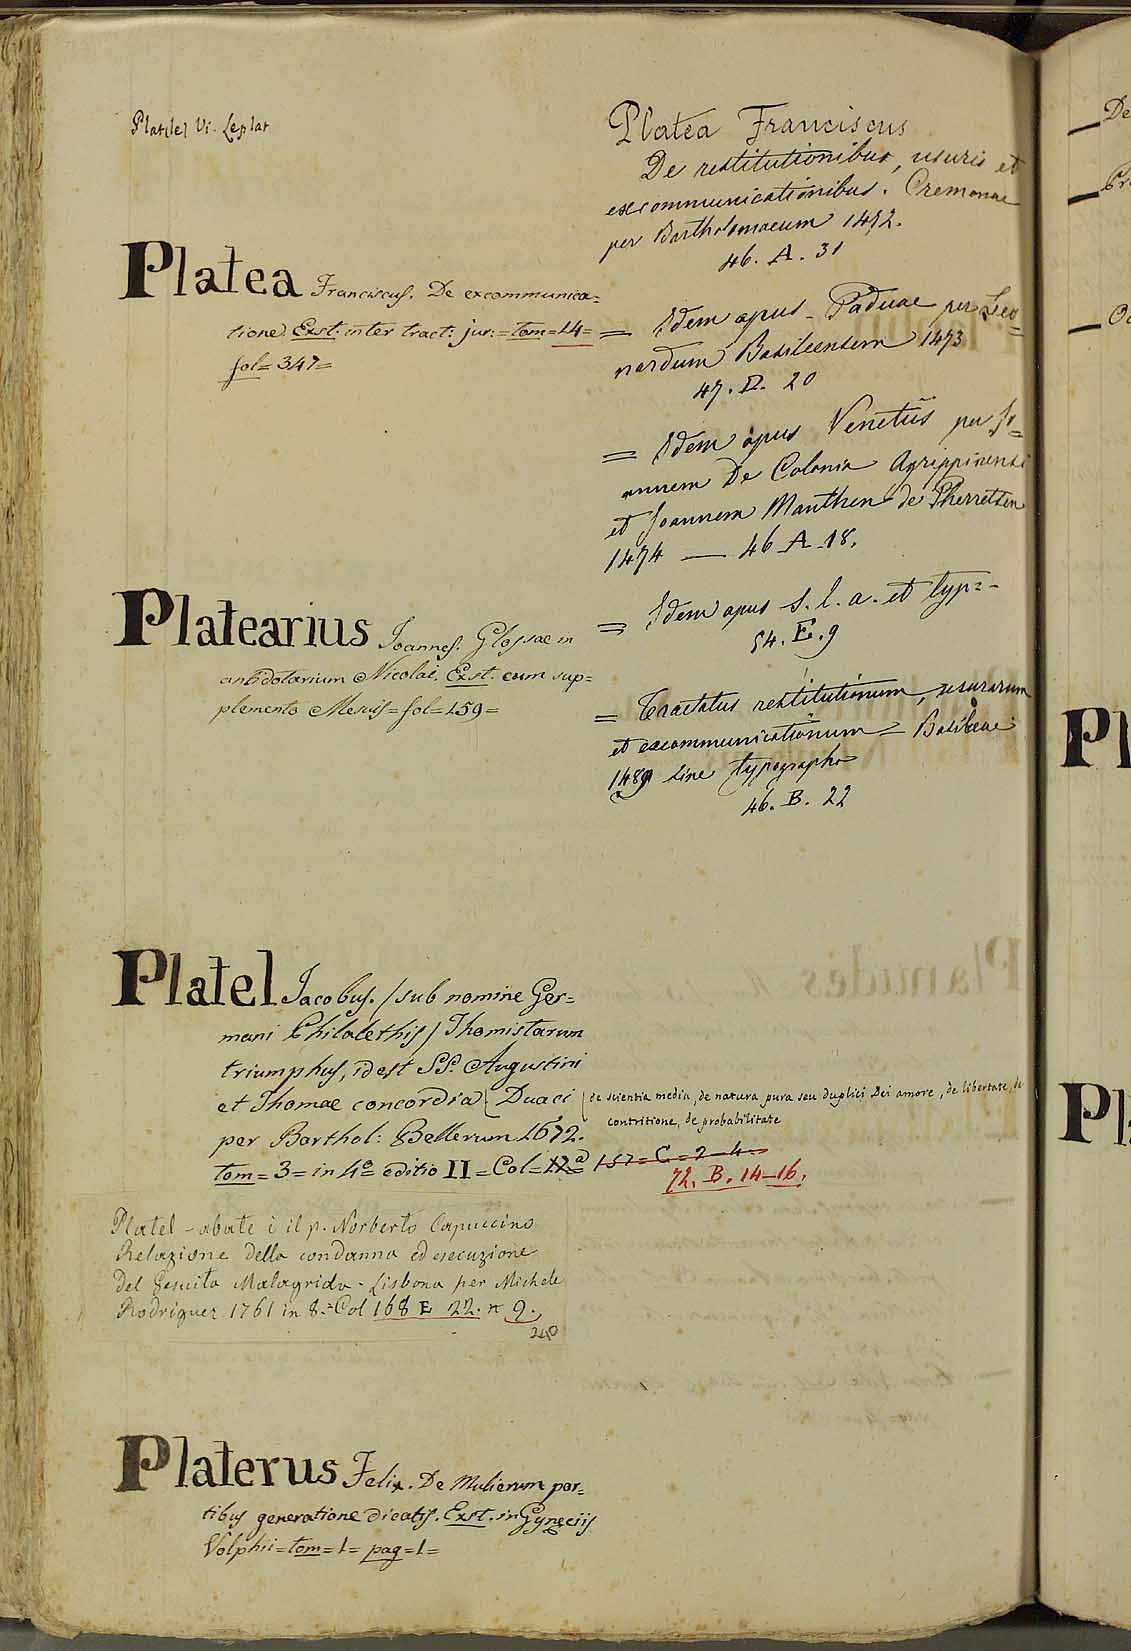 Platel Vi. Leplat
Platea Franciscus. De excommunica=
tione. Exst. inter tract: jur: = tom = 14 =
fol = 347 =
Platearius Joannes. Glossae in
antidotarium Nicolai. Exst. cum sup=
plemento Mesuis = fol = 159 =
Platel Jacobus. / sub nomine Ger=
mani Philalethis / Thomistarum
triumphus, id est SS. Augustini
et Thomae concordia Duaci
per Barthol: Bellerum 1672.
tom = 3 = in 4º editio II = Col =
Platel - abate i il p. Norberto Capuccino
Relazione della condanna ed esecuzione
del Gesuita Malagrida - Lisbona per Michele
Rodriguez 1761 in 8. = Col 168 E 22. n 9.
240
Platerus Felix. De Mulierum par=
tibus generatione dicatis. Exst. in Gynęciis
Volphii = tom = 1 = pag = 1 =
Platea Franciscus
De restitutionibus, usuris et
excommunicationibus. Cremonae
per Bartholomaeum 1472.
46. A. 31
= Idem opus - Paduae per Leo=
nardum Basileensem 1473
47. D. 20
= Idem opus Venetiis per Jo=
annem De Colonia Agrippinensi
et Joannem Manthen de Gherretsen
1474 — 46 A 18.
= Idem opus s. l. a. et typ = -
54. E. 9
= Tractatus restitutionum, usurarum
et excommunicationum = Basileae
1489 sine typographo
46. B. 22
de scientia media, de natura pura seu duplici Dei amore, de libertate, de
contritione, de probabilitate
157 = C = 2 - 4. -
72. B. 14-16.
De
Pr
Oc
Pl
Pla